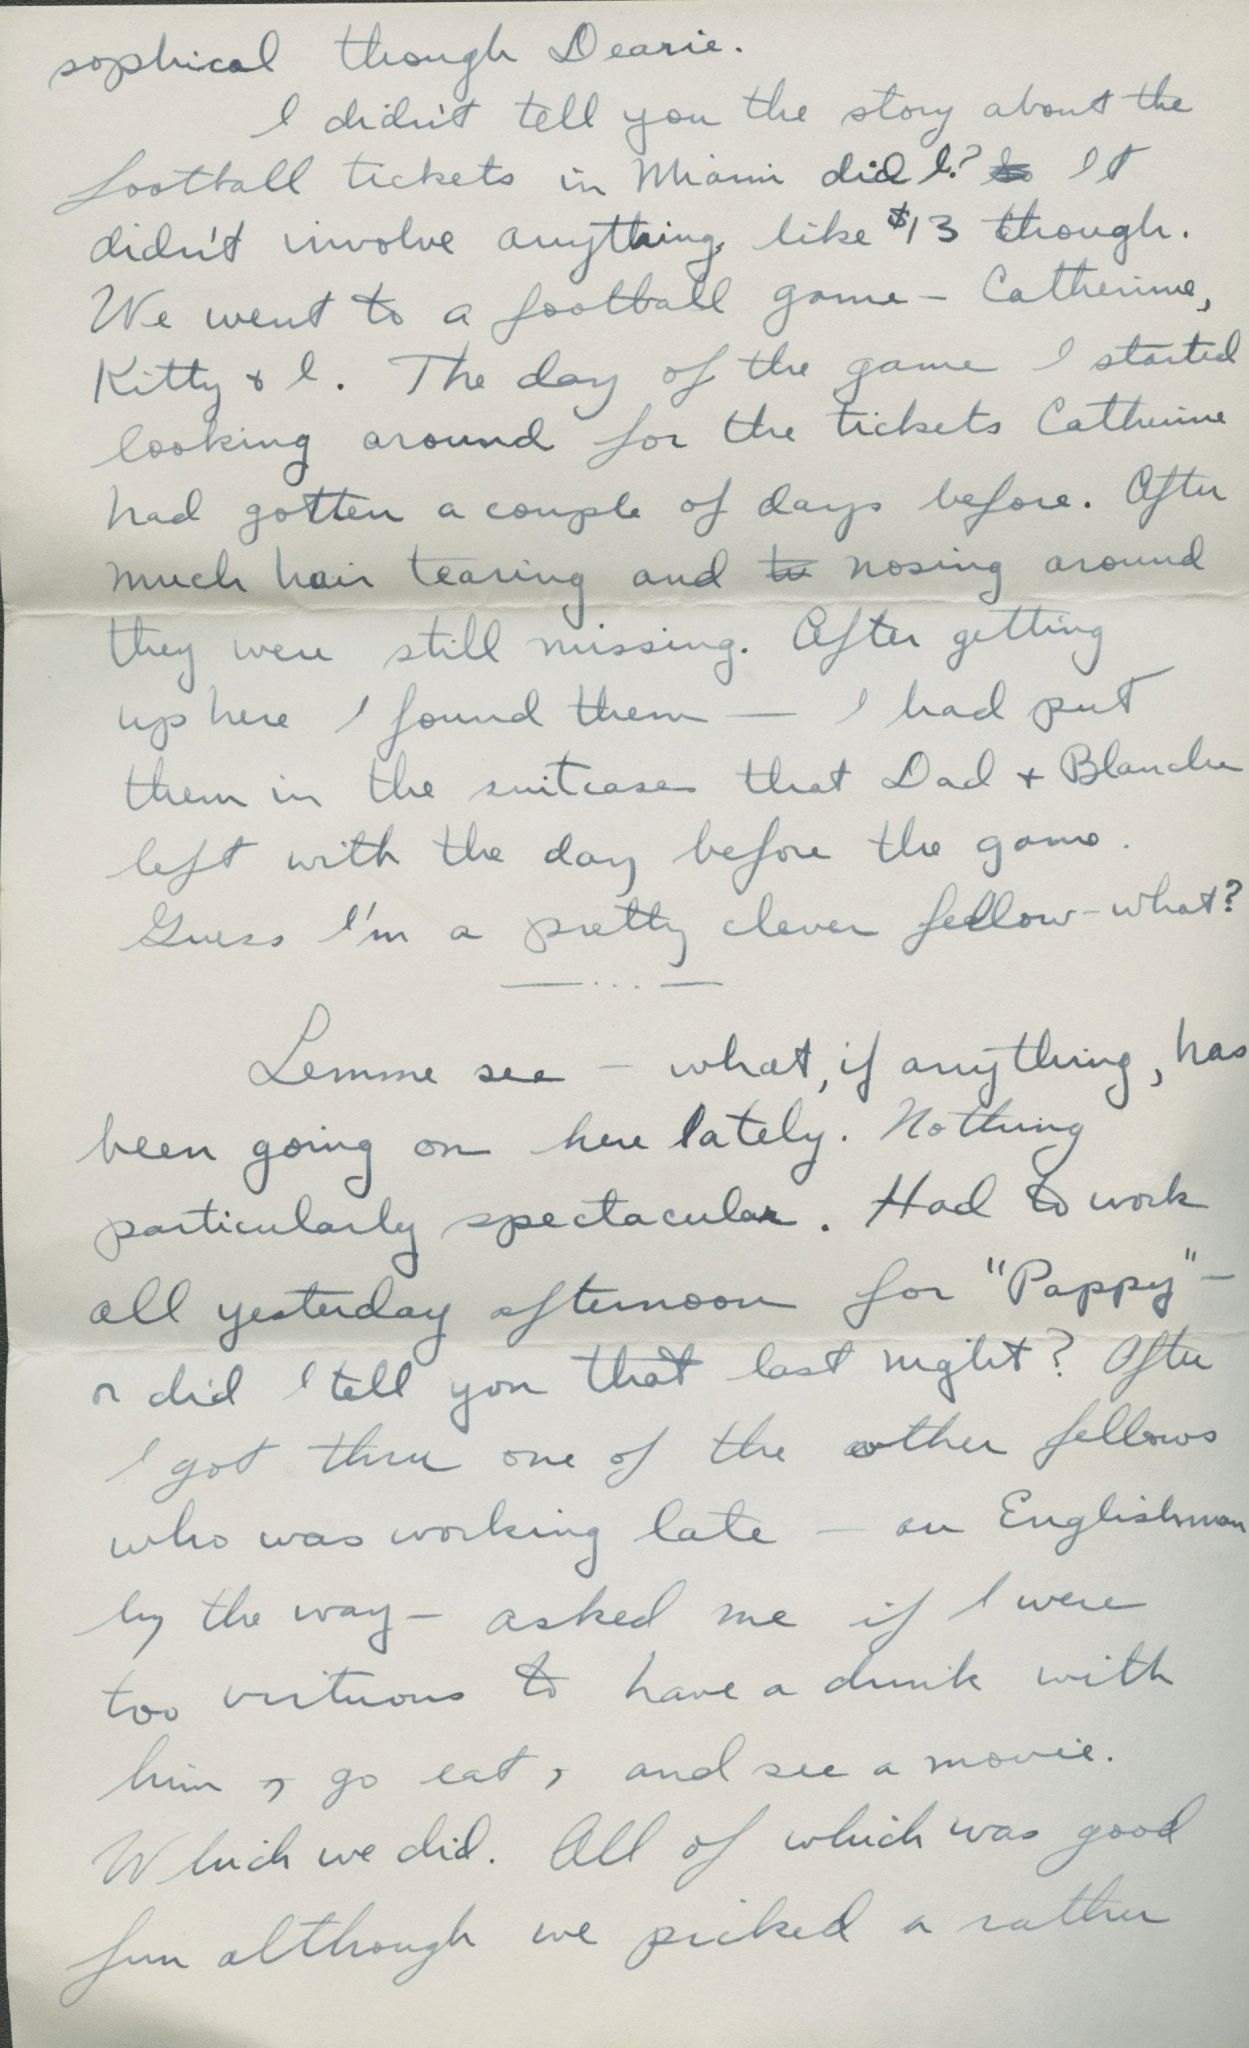 sophical though Dearie.
I didn't tell you the story about the
football tickets in Miami did I? to It
didn't involve anything like $13 though.
We went to a football game – Catherine,
Kitty & I. The day of the game I started
looking around for the tickets Catherine
had gotten a couple of days before. After
much hair tearing and to nosing around
they were still missing. After getting
up here I found them — I had put
them in the suitcases that Dad + Blanche
left with the day before the game.
Guess I'm a pretty clever fellow – what?
— . . . —
Lemme see – what, if anything, has
been going on here lately. Nothing
particularly spectacular. Had to work
all yesterday afternoon for "Pappy" –
or did I tell you that last night? After
I got thru one of the other fellows
who was working late – an Englishman
by the way – asked me if I were
too virtuous to have a drink with
him, go eat, and see a movie.
Which we did. All of which was good
fun although we picked a rather